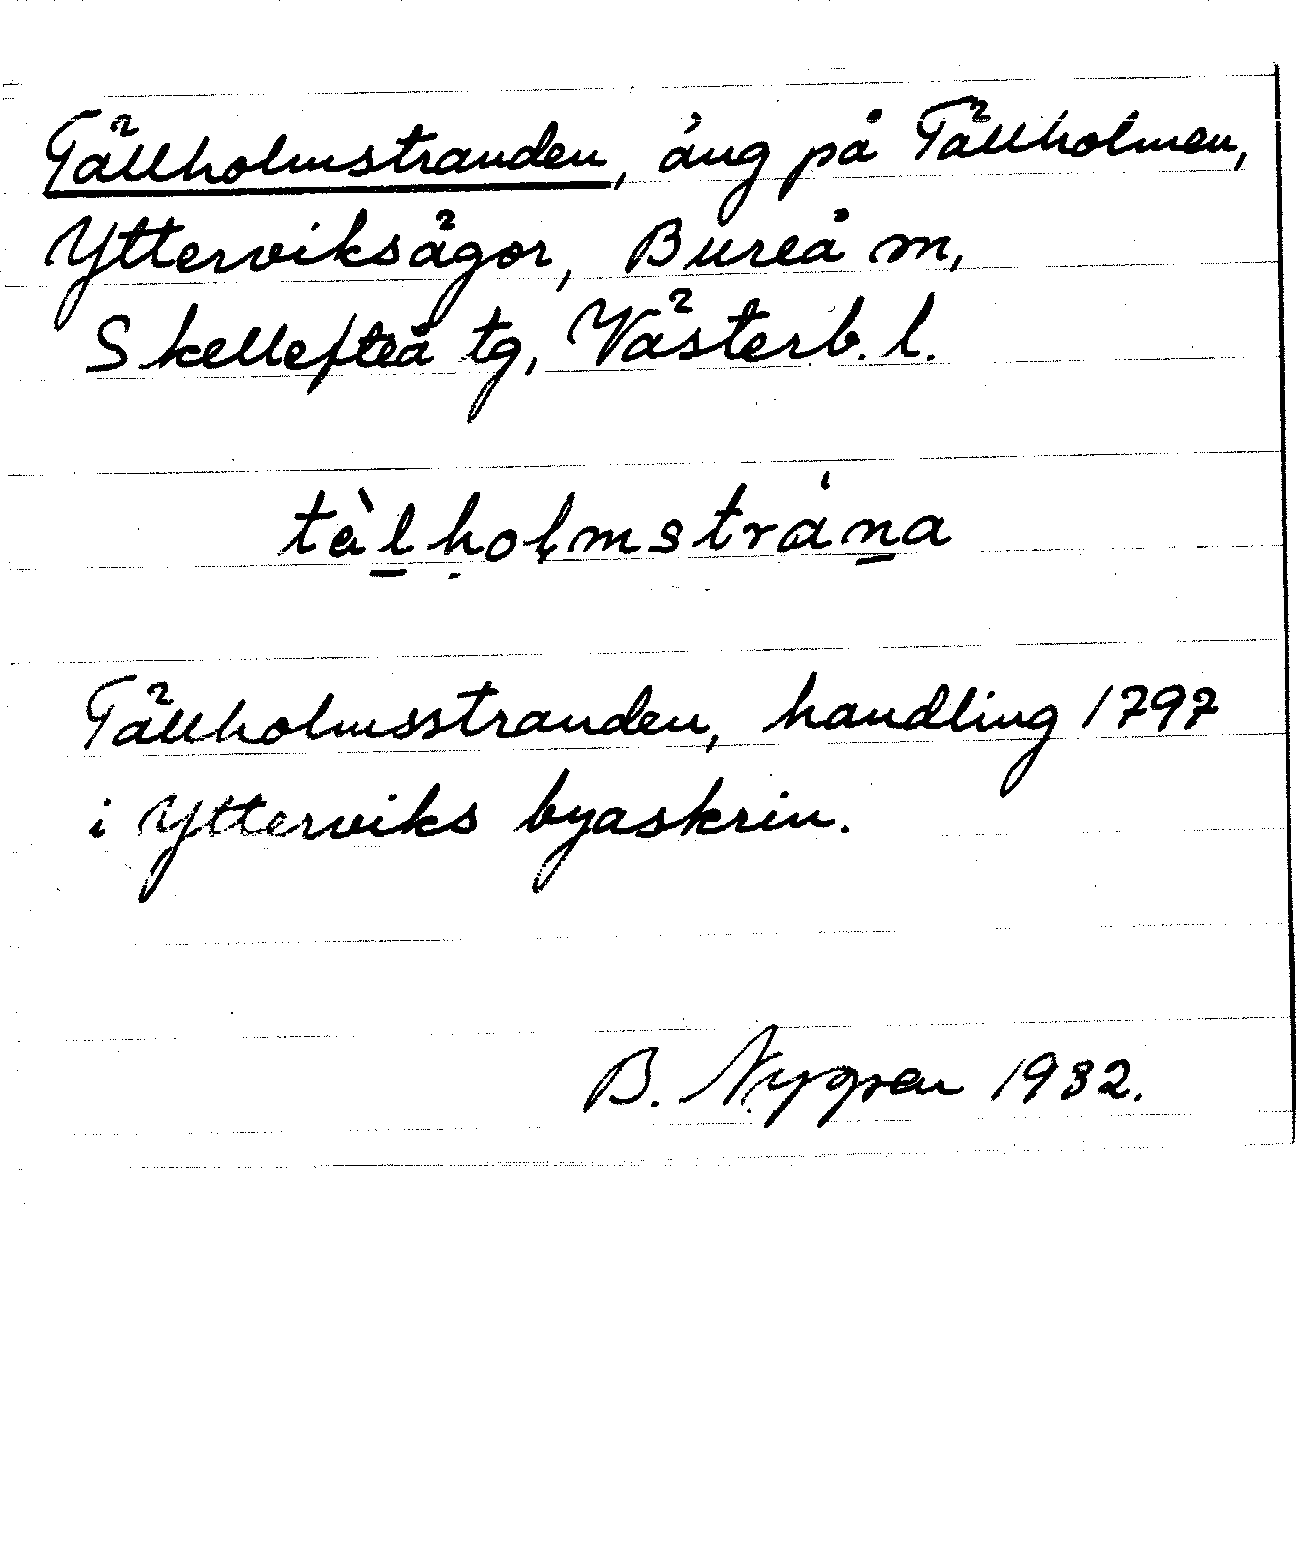 Tällholmstranden, äng på Tällholmen,
Ytterviksägor, Bureå m,
Skellefteå tg, Västerb. l.
tàlholmstrána
Tällholmsstranden, handling 1797
i Ytterviks byaskrin.
B. Nygren 1932.